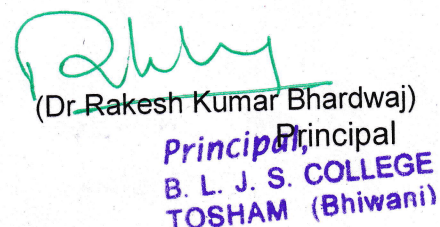 (Dr Rakesh Kumar Bhardwaj)
Principal
Principal,
B. L. J. S. COLLEGE
TOSHAM (Bhiwani)